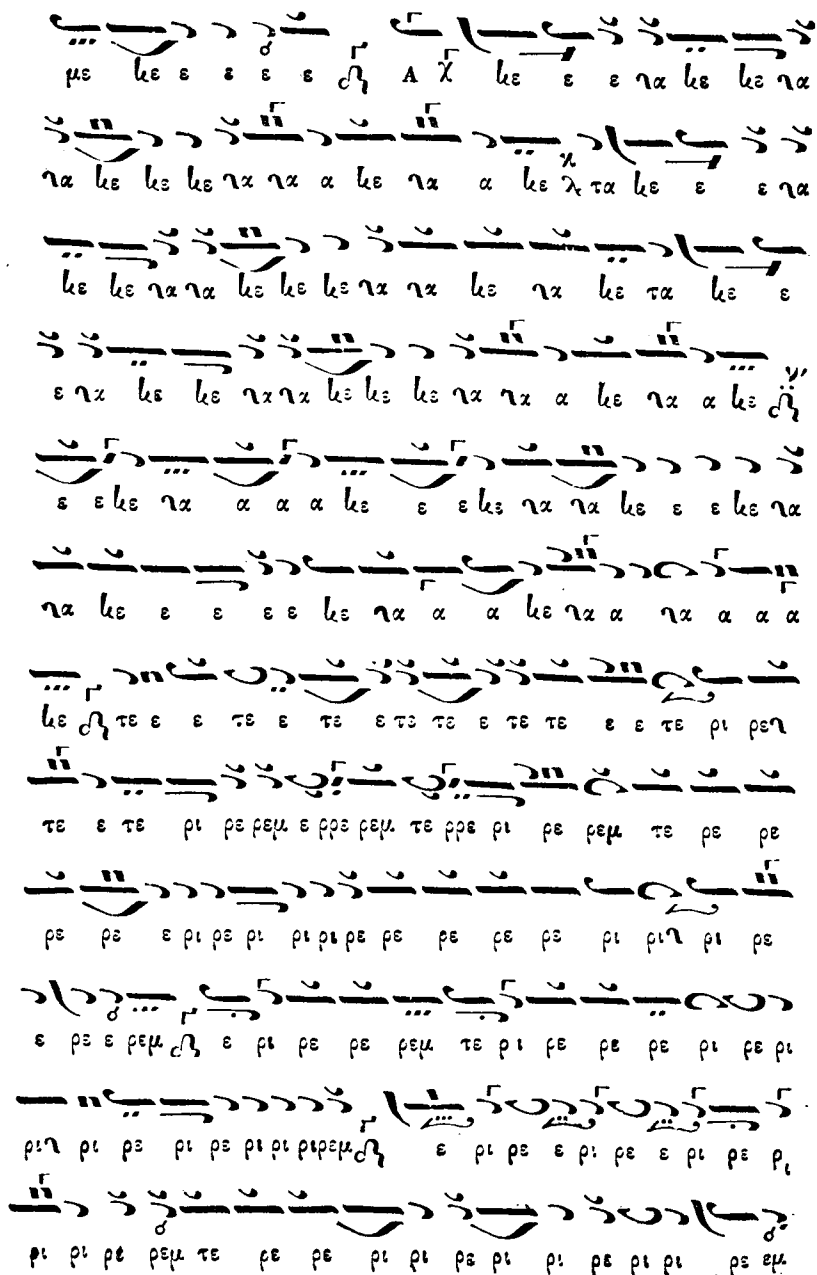 με κε ε ε ε ε Α χ κε ε ε να κε κε να
να κε κε κε να να α κε να α κε λ τα κε ε ε να
κε κε να να κε κε κε να να κε να κε τα κε ε
ε να κε κε να να κε κε κε να να α κε να α κε
ε ε κε να α α α κε ε ε κε να να κε ε ε κε να
να κε ε ε ε ε κε να α α κε να α να α α α
κε τε ε ε τε ε τε ε τε τε ε τε τε ε ε τε ρι ρεν
τε ε τε ρι ρε ρεμ ε ρρε ρεμ τε ρρε ρι ρε ρεμ τε ρε ρε
ρε ρε ε ρι ρε ρι ρι ρι ρε ρε ρε ρε ρε ρι ριν ρι ρε
ε ρε ε ρεμ ε ρι ρε ρε ρεμ τε ρι ρε ρε ρε ρι ρε ρι
ριν ρι ρε ρι ρε ρι ρι ρι ρεμ ε ρι ρε ε ρι ρε ε ρι ρε ρι
ρι ρι ρε ρεμ τε ρε ρε ρι ρι ρε ρι ρι ρε ρι ρι ρε εμ